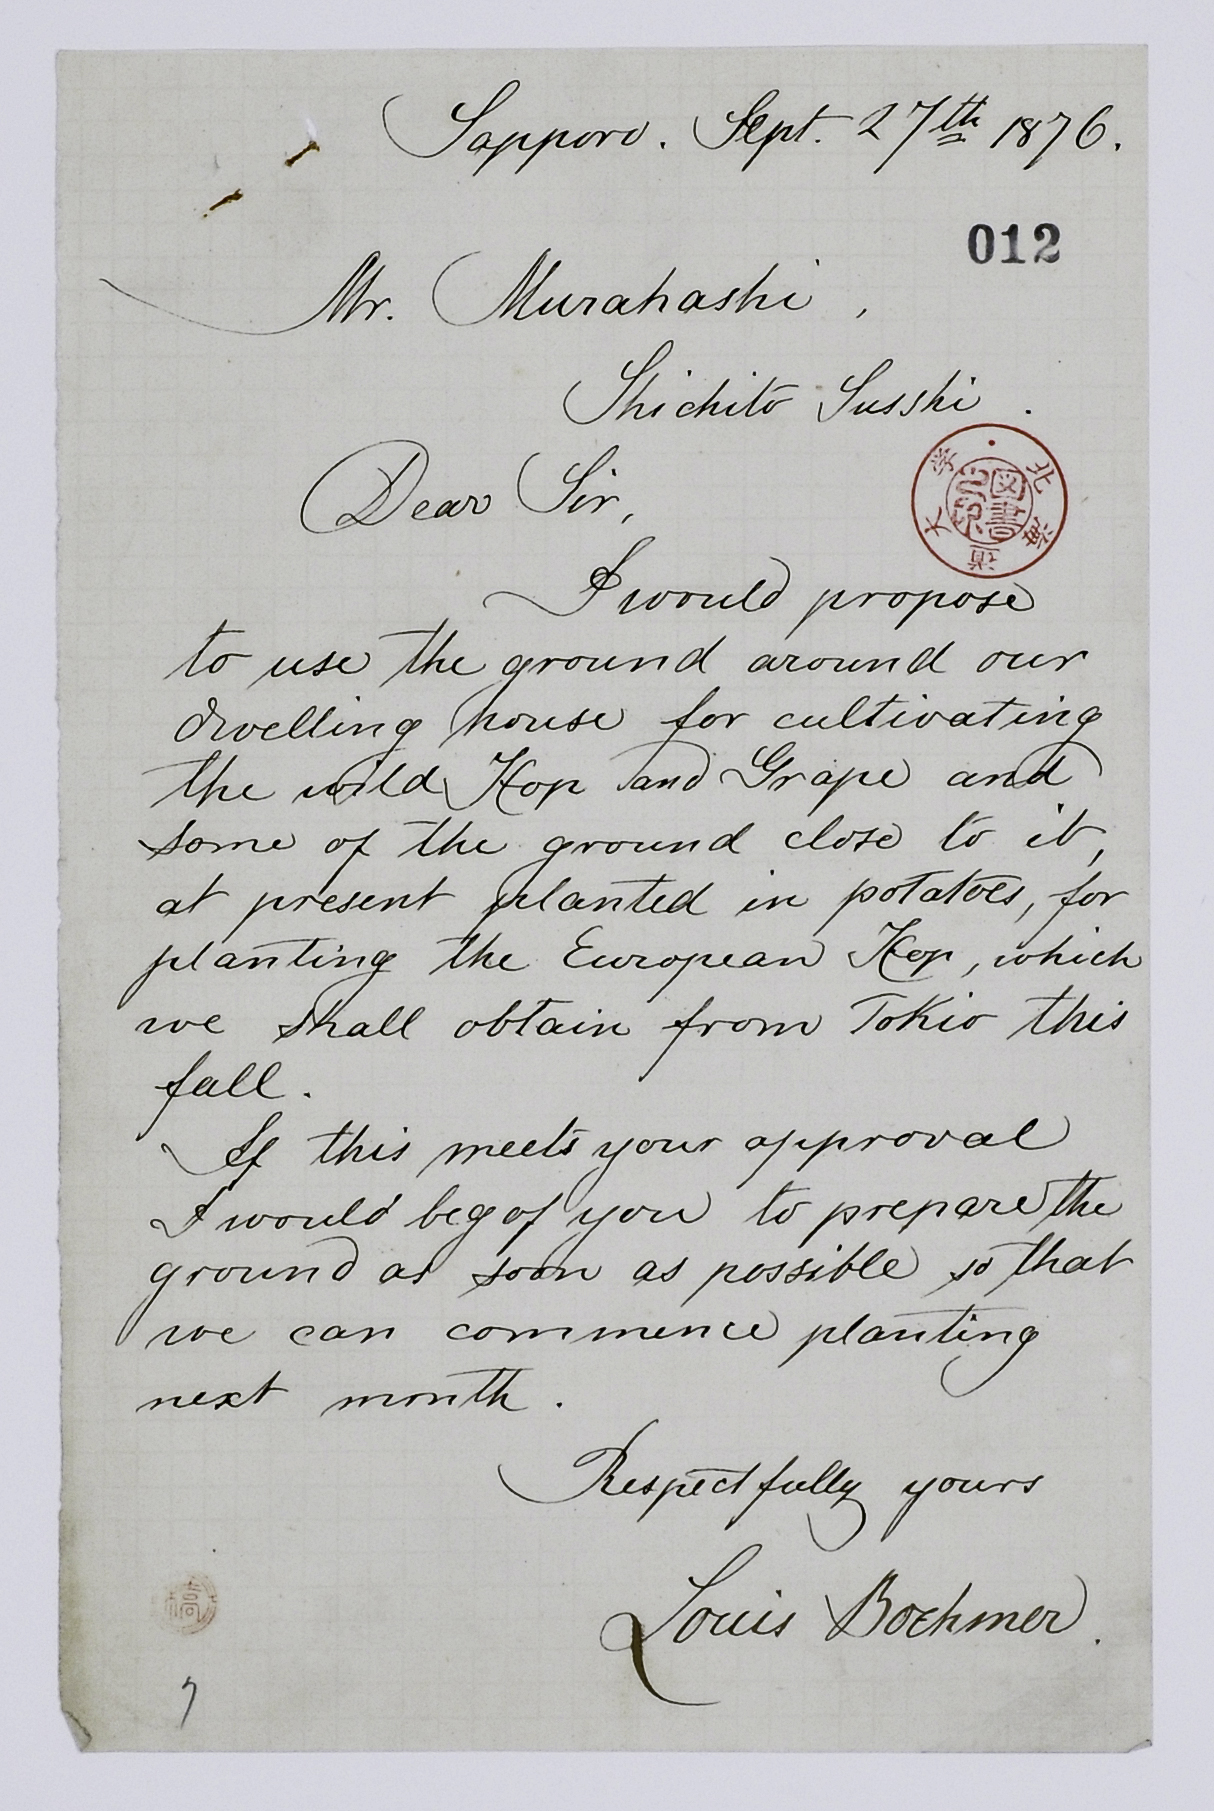 Sapporo. Sept. 27th 1876.
012
Mr. Murahashi,
Shichito Susshi.
Dear Sir,
I would propose
to use the ground around our
dwelling house for cultivating
the wild Hop and Grape and
some of the ground close to it,
at present planted in potatoes, for
planting the European Hop, which
we shall obtain from Tokio this
fall.
If this meets your approval
I would beg of you to prepare the
ground as soon as possible so that
we can commence planting
next month.
Respectfully yours
Louis Boehmer.
北海道大学
図書
7